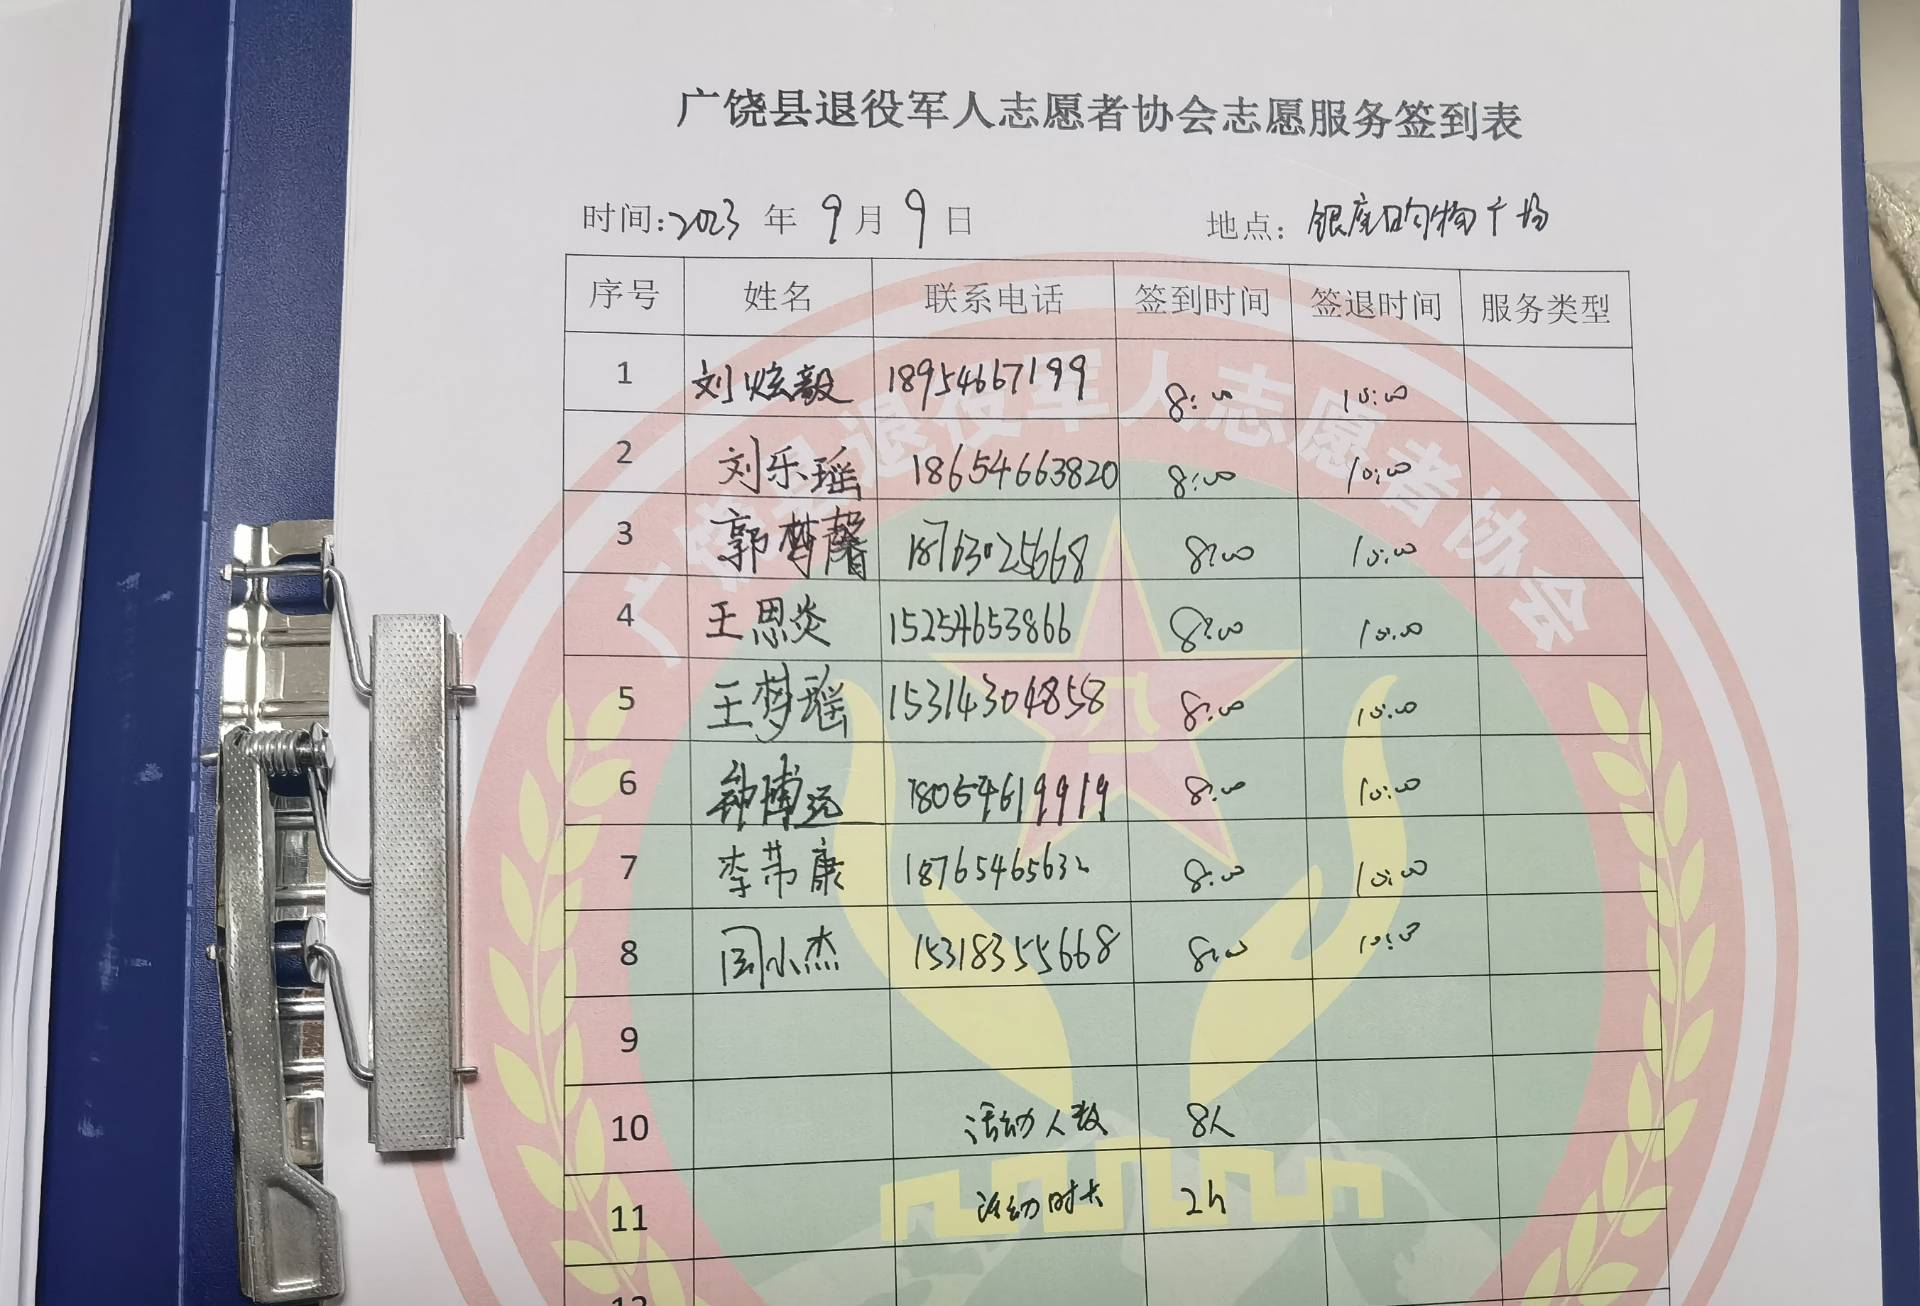 广饶县退役军人志愿者协会志愿服务签到表
时间:2023 年 9 月 9 日 地点: 银座购物广场
序号 姓名 联系电话 签到时间 签退时间 服务类型
1 刘炫毅 18954667199 8:00 10:00
2 刘乐瑶 18654663820 8:00 10:00
3 郭梦馨 18763025668 8:00 10:00
4 王思炎 15254653866 8:00 10:00
5 王梦瑶 15314304858 8:00 10:00
6 钟博远 18054619919 8:00 10:00
7 李芾康 18765465632 8:00 10:00
8 周小杰 15318355668 8:00 10:00
9
10 活动人数 8人
11 活动时长 2h
12
广饶县退役军人志愿者协会